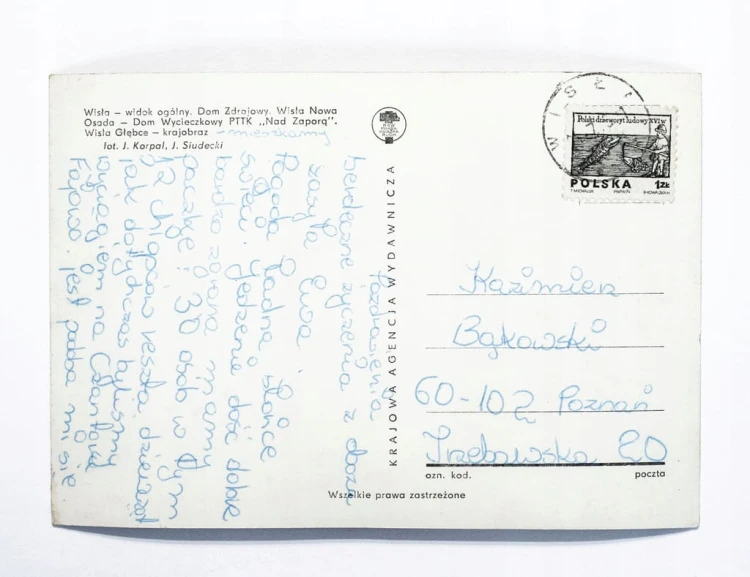 Wisła – widok ogólny. Dom Zdrojowy. Wisła Nowa
Osada – Dom Wycieczkowy PTTK „Nad Zaporą".
Wisła Głębce – krajobraz - mieszkamy
fot. J. Korpal, J. Siudecki
Pozdrowienia
serdeczne życzenia z obozu
zasyła
Ewa
Pogoda ładna słońce
świeci. Jedzenie dość dobre
bardzo zgrana mamy
paczkę! 30 osób w tym
12 chłopców reszta dziewcząt
Jak dotychczas byliśmy
wyciągiem na Czantorii
Fajowo jest podoba mi się
KRAJOWA AGENCJA WYDAWNICZA
WISŁA
Polski drzeworyt ludowy XVI w.
POLSKA 1 ZŁ
Kazimierz
Bąkowski
60-102 Poznań
Trzebawska 20
ozn. kod. poczta
Wszelkie prawa zastrzeżone